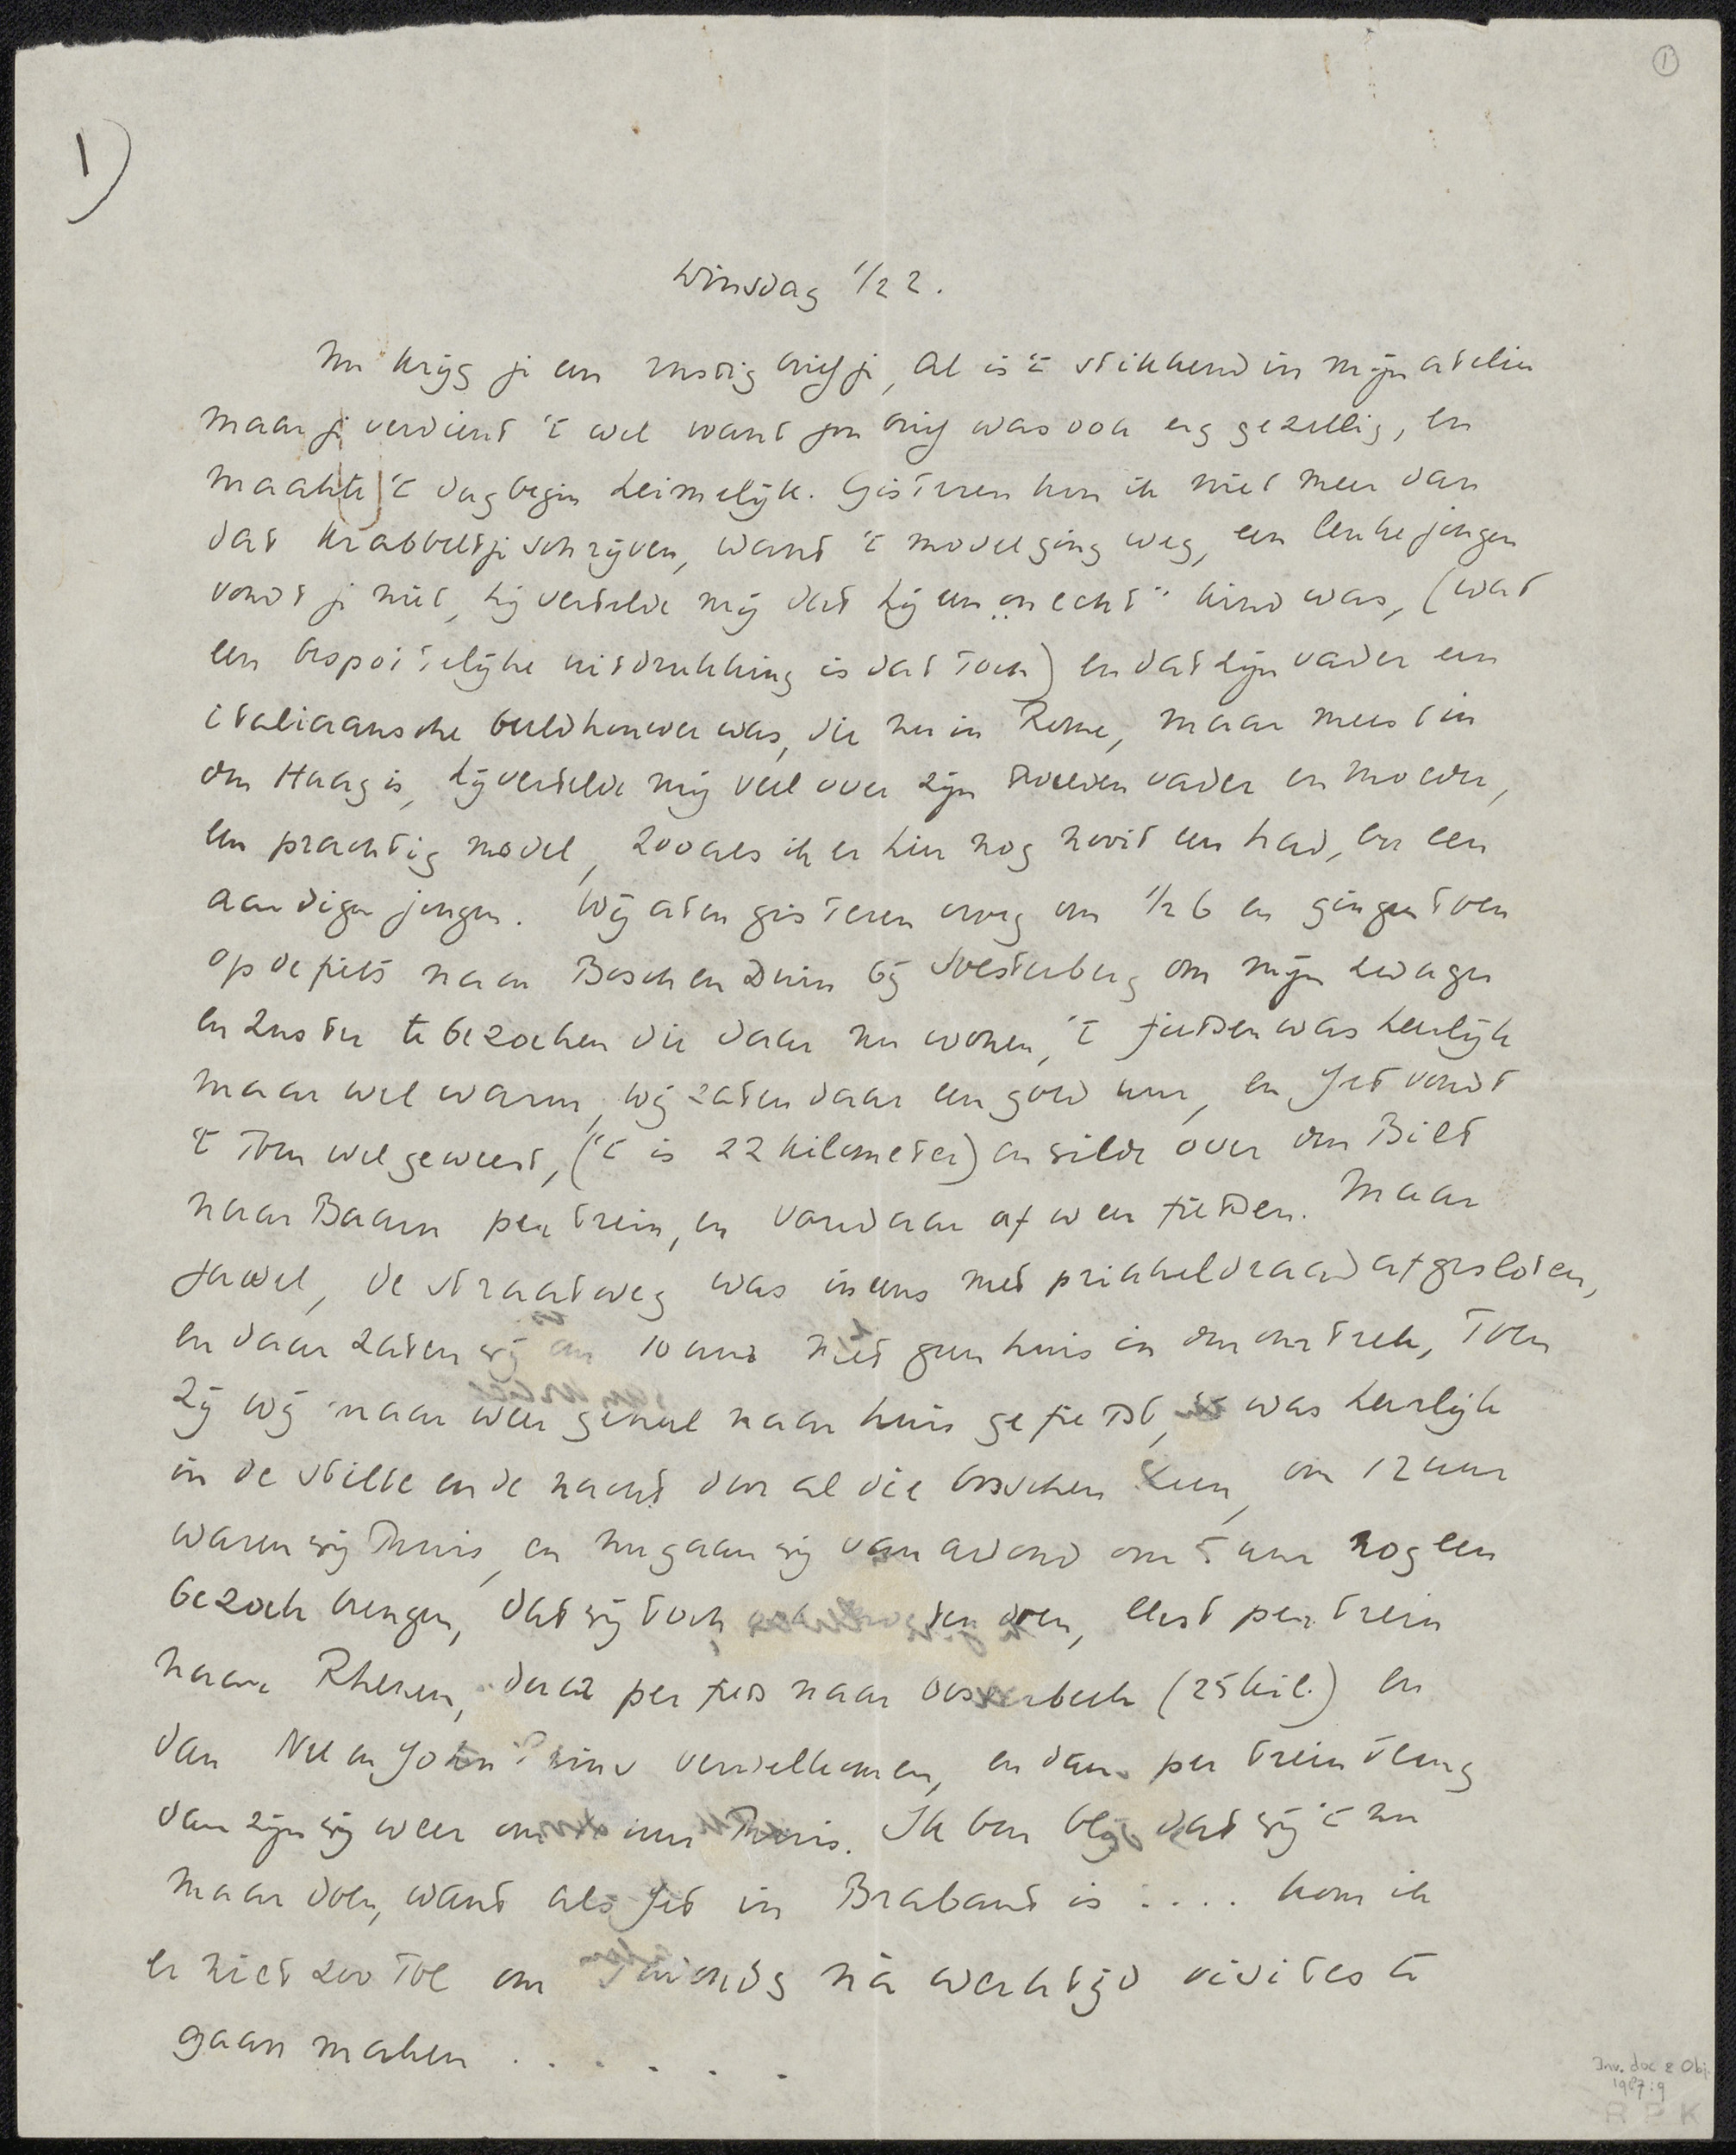 1
1)
Winsdag 1/2 2.
Nu krijg je een rustig briefje, al is 't stikkend in mijn atelier
maar je verdient 't wel want jou brief was ook erg gezellig, en
maakte 't dagbegin heimelijk. Gisteren kon ik niet meer dan
dat krabbeltje schrijven, want 't model ging weg, een leuke jongen
vondt je niet, hij vertelde mij dat hij een „onecht" kind was, (wat
een bespottelijke uitdrukking is dat toch) en dat zijn vader een
italiaansche beeldhouwer was, die nu in Rome, maar meest in
den Haag is, hij vertelde mij veel over zijn tweeden vader en moeder,
een prachtig model, zooals ik er hier nog nooit een had, en een
aardige jongen. Wij aten gisteren vroeg om 1/2 6 en gingen toen
op de fiets naar Bosch en Duin bij Soesterberg om mijn zwager
en zuster te bezoeken die daar nu wonen, 't fietsen was heerlijk
maar wel warm, wij zaten daar een goed uur, en Jet vondt
't toen wel geweest, ('t is 22 kilometer) en wilde over den Bilt
naar Baarn per trein, en vandaar af weer fietsen. Maar
jawel, de straatweg was ineens met prikkeldraad afgesloten,
en daar zaten wij om 10 uur niet geen huis in den omtrek, toen
zij wij maar weer geheel naar huis gefietst, 't was heerlijk
in de stilte en de nacht door al die bosschen heen, om 12 uur
waren wij thuis, en nu gaan wij van avond om 5 uur nog een
bezoek brengen, dat wij toch doen, eerst per trein
naar Rhenen, daar per fiets naar Oosterbeek (25 kil.) en
dan Nel en John verwelkomen, en dan per trein terug
dan zijn wij weer om uur thuis. Ik ben blij dat wij 't nu
maar doen, want als Jet in Brabant is . . . . kom ik
er niet zoo toe om 's avonds na werktijd visites te
gaan maken . . . . . .
Inv. doc & Obj.
1987:9
R P K